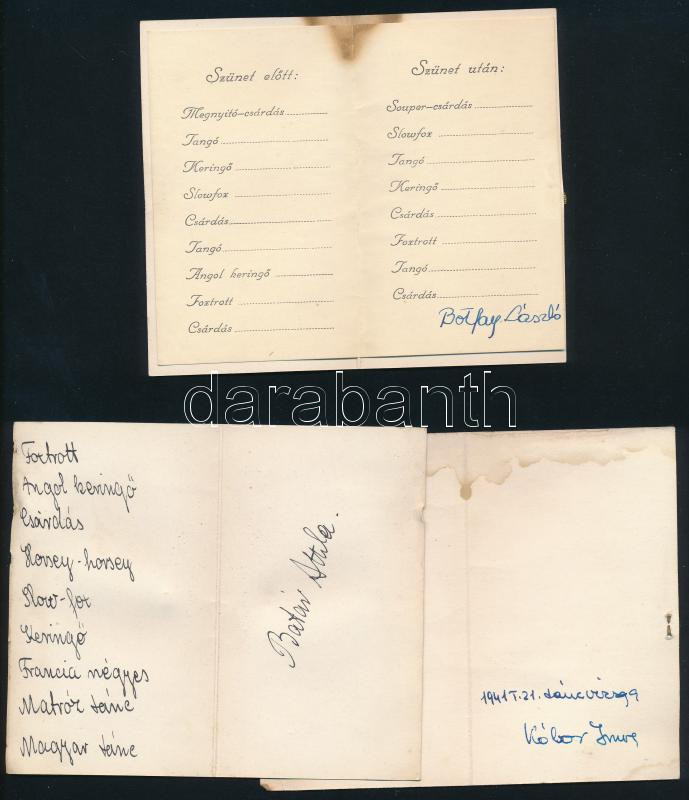 Szünet előtt:
Megnyitó-csárdás
Tangó
Keringő
Slowfox
Csárdás
Tangó
Angol keringő
Foxtrott
Csárdás
Szünet után:
Souper-csárdás
Slowfox
Tangó
Keringő
Csárdás
Foxtrott
Tangó
Csárdás
Botfay László
darabanth
Foxtrott
Angol keringő
Csárdás
Horsey-horsey
Slow-fox
Keringő
Francia négyes
Matróz tánc
Magyar tánc
Batár Attila.
1941 I. 21. táncvizsga
Kóbor Imre